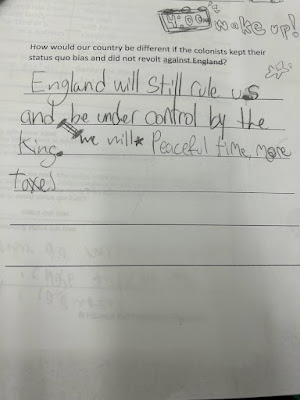 4:00 wake up!
How would our country be different if the colonists kept their
status quo bias and did not revolt against England?
England will still rule us
and be under control by the
King. we will* Peaceful time, more
taxes